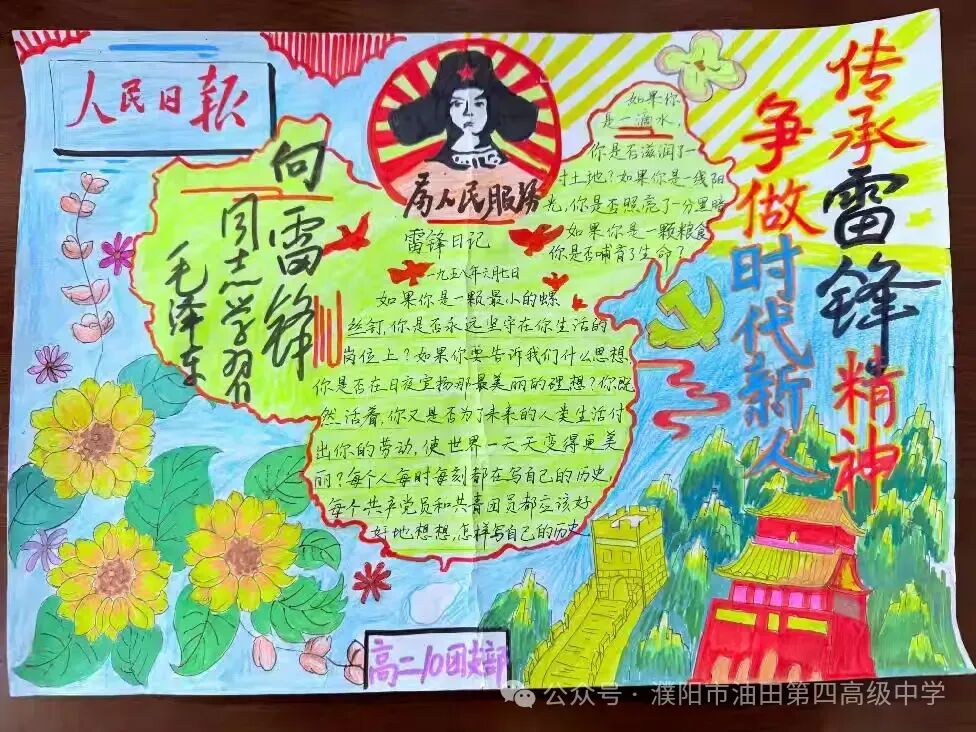 人民日报
向
雷锋
同志学习
毛泽东
为人民服务
雷锋日记
一九五八年六月七日
如果你
是一滴水，
你是否滋润了一
寸土地？如果你是一线阳
光，你是否照亮了一分黑暗
如果你是一颗粮食
你是否哺育了生命？
如果你是一颗最小的螺
丝钉，你是否永远坚守在你生活的
岗位上？如果你要告诉我们什么思想，
你是否在日夜宣扬那最美丽的理想？你既
然活着，你又是否为了未来的人类生活付
出你的劳动，使世界一天天变得更美
丽？每个人每时每刻都在写自己的历史，
每个共产党员和共青团员都应该好
好地想想，怎样写自己的历史
传承雷锋精神
争做时代新人
高二10团支部
公众号·濮阳市油田第四高级中学